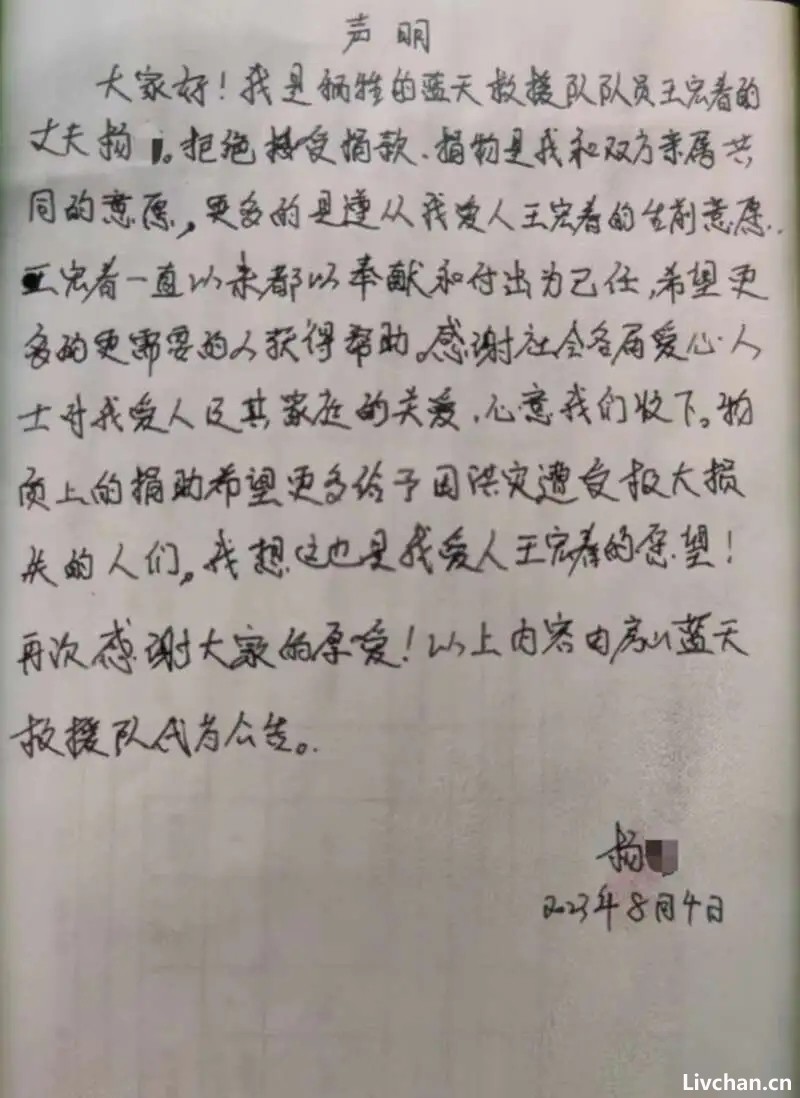 声明
大家好！我是牺牲的蓝天救援队队员王宏春的
丈夫杨 。拒绝接受捐款、捐物是我和双方亲属共
同的意愿，更多的是遵从我爱人王宏春的生前意愿.
王宏春一直以来都以奉献和付出为己任，希望更
多的更需要的人获得帮助。感谢社会各届爱心人
士对我爱人及其家庭的关爱，心意我们收下。物
质上的捐助希望更多给予因洪灾遭受极大损
失的人们。我想这也是我爱人王宏春的愿望！
再次感谢大家的厚爱！以上内容由房山蓝天
救援队代为公告。
杨
2023年8月4日
Livchan.cn